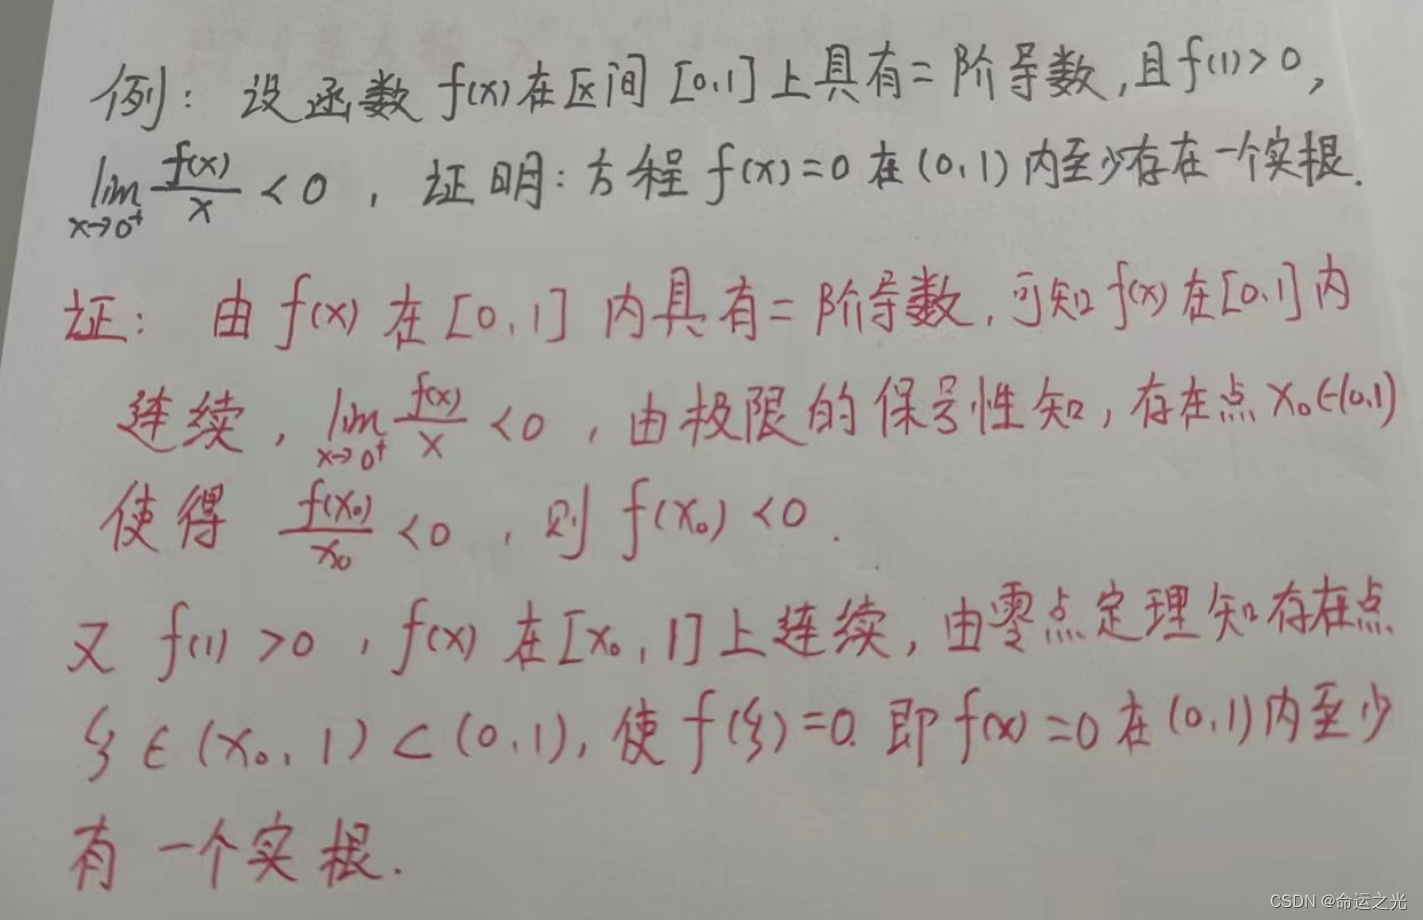 例：设函数 f(x)在区间 [0,1]上具有二阶导数,且f(1)>0,
lim x→0⁺ f(x)/x <0 , 证明：方程 f(x)=0 在(0,1)内至少存在一个实根.
证：由 f(x) 在[0,1] 内具有二阶导数,可知 f(x)在[0,1]内
连续, lim x→0⁺ f(x)/x <0 ,由极限的保号性知,存在点 x₀∈(0,1)
使得 f(x₀)/x₀ <0 ,则 f(x₀)<0.
又 f(1)>0 ,f(x) 在[x₀,1]上连续,由零点定理知存在点
ξ∈(x₀,1)⊂(0,1),使 f(ξ)=0.即 f(x)=0在(0,1)内至少
有一个实根.
CSDN @命运之光